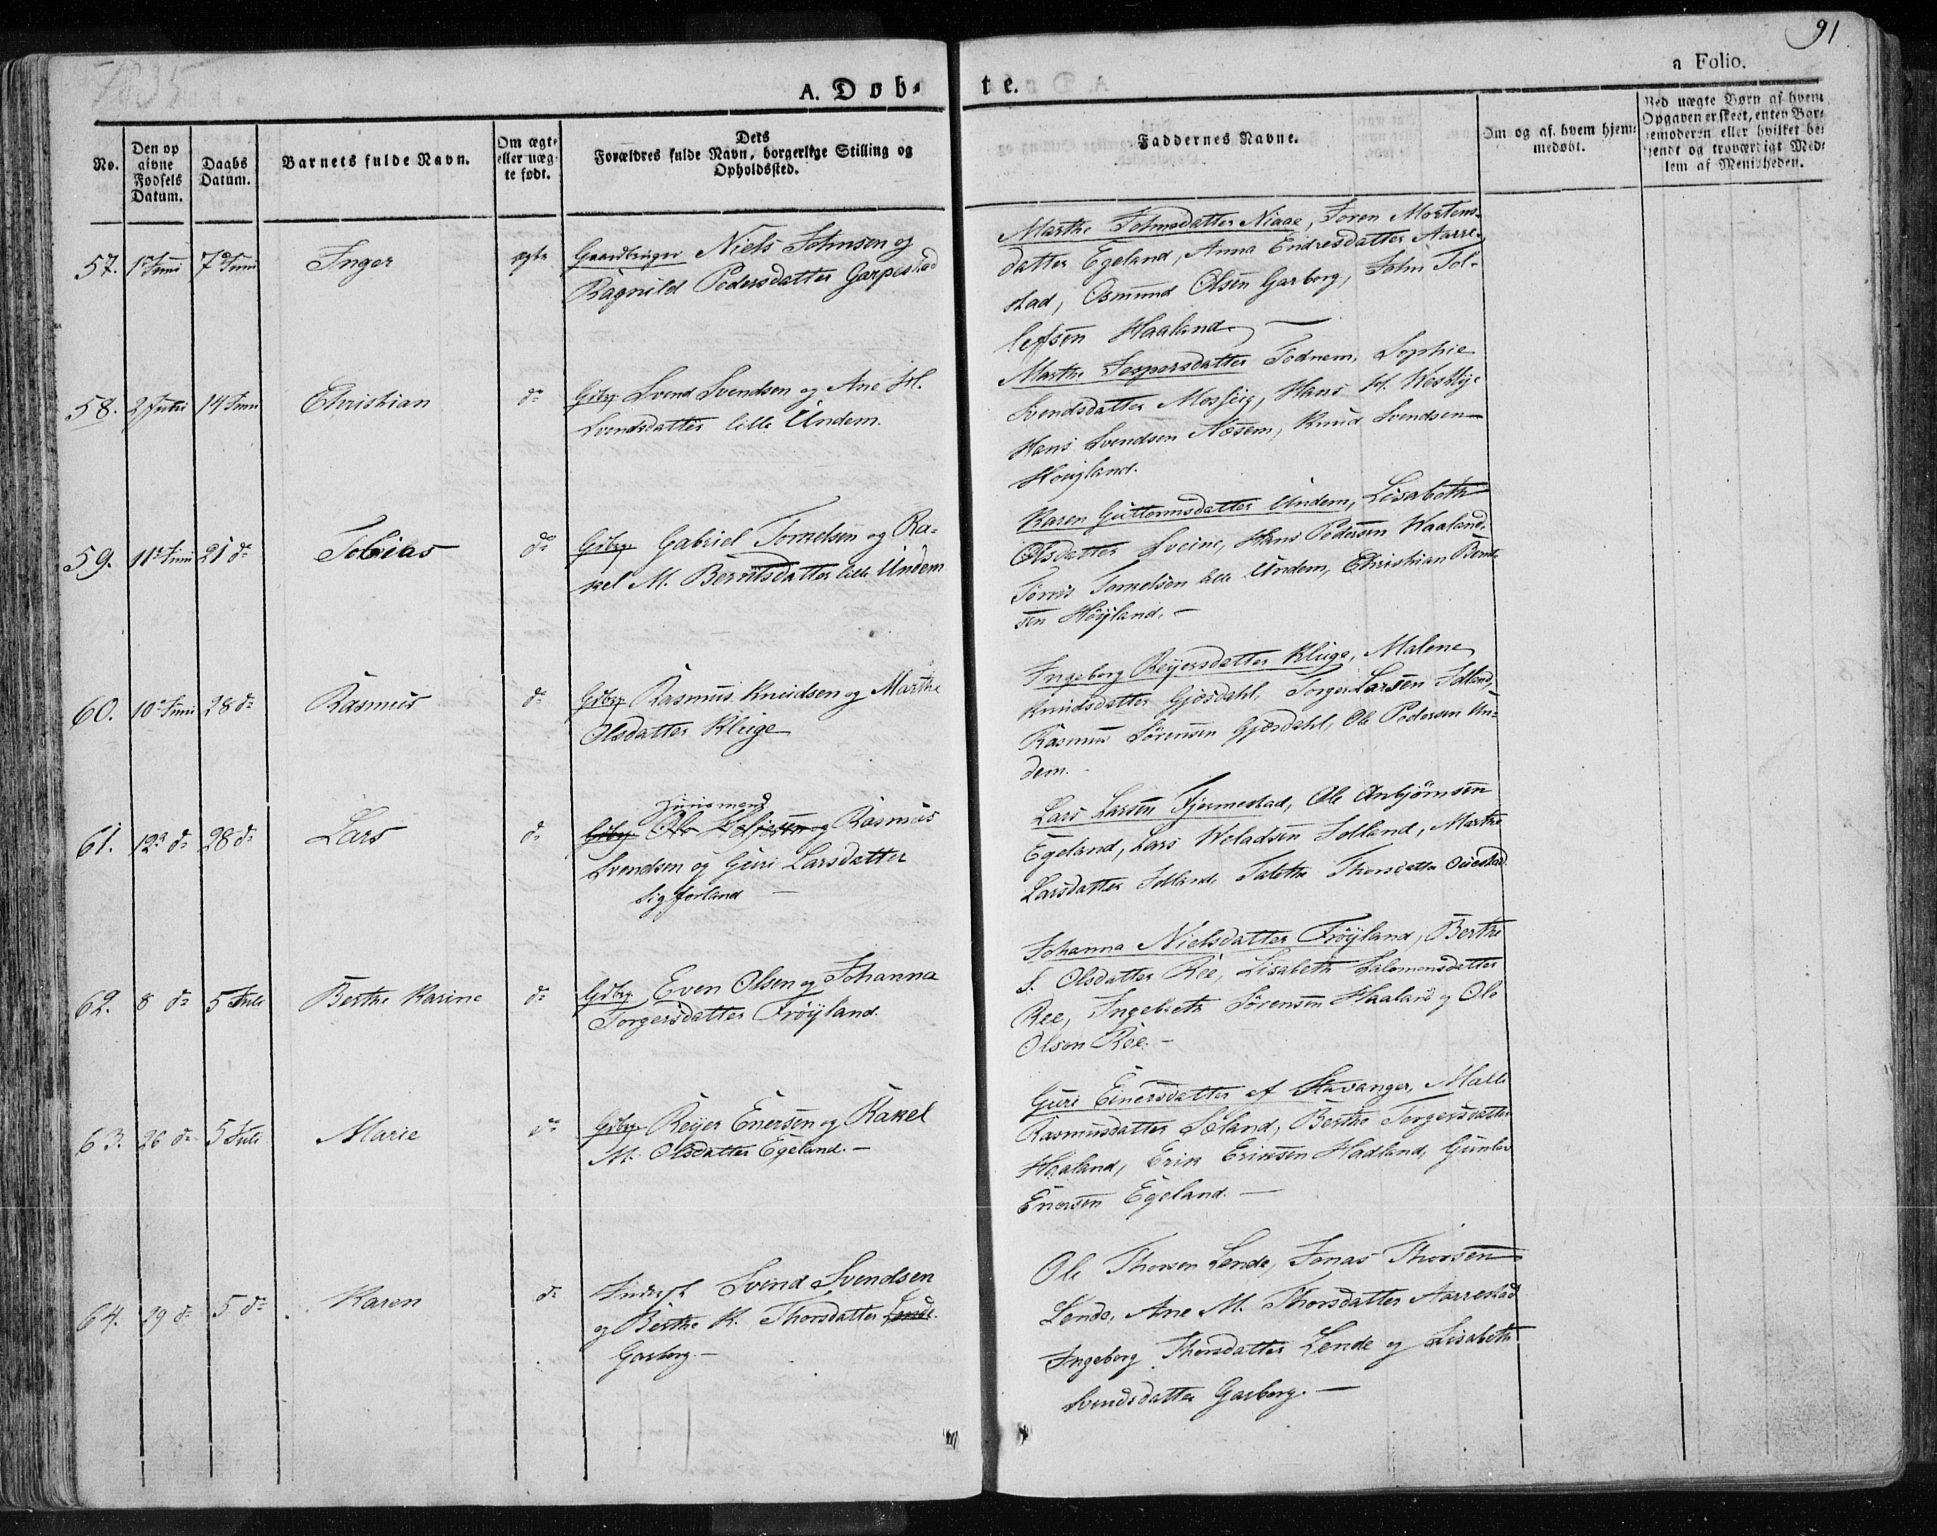 1835
91
A. Døb-
te.
a Folio.
No.
Den op
givne
Fødsels
Datum.
Daabs
Datum.
Barnets fulde Navn.
Om ægte
eller uæg-
te født.
Dets
Forældres fulde Navn, borgerlige Stilling og
Opholdssted.
Faddernes Navne.
Om og af hvem hjem-
medøbt.
Ved uægte Børn af hvem
Opgaven er skeet, enten Bar-
nemoderen eller hvilket be-
kjendt og troværdigt Med-
lem af Menigheden.
57. 1 Juni 7de Juni Inger ægte Gaardbruger Niels Johnsen og
Ragnild Pedersdatter Garpestad
Marthe Johnsdatter Niaae, Joren Mortens-
datter Egeland, Anna Endresdatter Aarre-
stad, Osmund Olsen Garborg, John Tol-
lefsen Haaland.
58. 2 Juni 14 Juni Christian do Gdbrg Svend Svendsen og Ane H.
Svendsdatter lille Undem.
Marthe Jespersdatter Todnem, Sophie
Svendsdatter Mosseig, Hans H. Westbye
Hans Svendsen Næsem, Knud Svendsen
Høigland.
59. 11te Juni 21 do Tobias do Gdbrg Gabriel Tornelsen og Ra-
kel M. Berntsdatter lille Undem
Karen Guttormsdatter Undem, Lisabeth
Olsdatter Sveine, Hans Pedersen Waaland,
Torris Tornelsen lille Undem, Christian Bernt-
sen Høyland. -
60. 10de Juni 28 do Rasmus do Gdbrg Rasmus Knudsen og Marthe
Olsdatter Kluge
Ingeborg Reyersdatter Kluge, Malene
Knudsdatter Gjesdahl, Torger Larsen Idland,
Rasmus Sørensen Gjesdahl, Ole Pedersen Un-
dem.
61. 12te do 28 do Lars do Gdbrg Ole og Rasmus
Huusmand
Svendsen og Guri Larsdatter
Sigførland
Lars Larsen Fjermestad, Ole Anbjørnsen
Egeland, Lars Weladsen Idland, Marthe
Larsdatter Idland, Taletha Thorsdatter Ouestad
62. 8 do 5 Juli Berthe Karine do Gdbrg Even Olsen og Johanna
Torgersdatter Frøyland.
Johanna Nielsdatter Frøyland, Berthe
S. Olsdatter Ree, Lisabeth Salomonsdatter
Ree, Ingebreth Sørensen Haaland og Ole
Olsen Ree. -
63. 26 do 5 Juli Marie do Gdbrg Reyer Enersen og Rakel
M. Olsdatter Egeland. -
Guri Einersdatter af Stavanger, Malli
Rasmusdatter Sæland, Berthe Torgersdatter
Haaland, Erik Eriksen Hadland, Gunlev
Enersen Egeland. -
64. 29 do 5 do Karen do Inderst Svend Svendsen
og Berthe K. Thorsdatter Lende
Garborg. -
Ole Thorsen Lende, Jonas Thorsen
Lende, Ane M. Thorsdatter Aarrestad
Ingeborg Thorsdatter Lende og Lisabeth
Svendsdatter Garborg. -